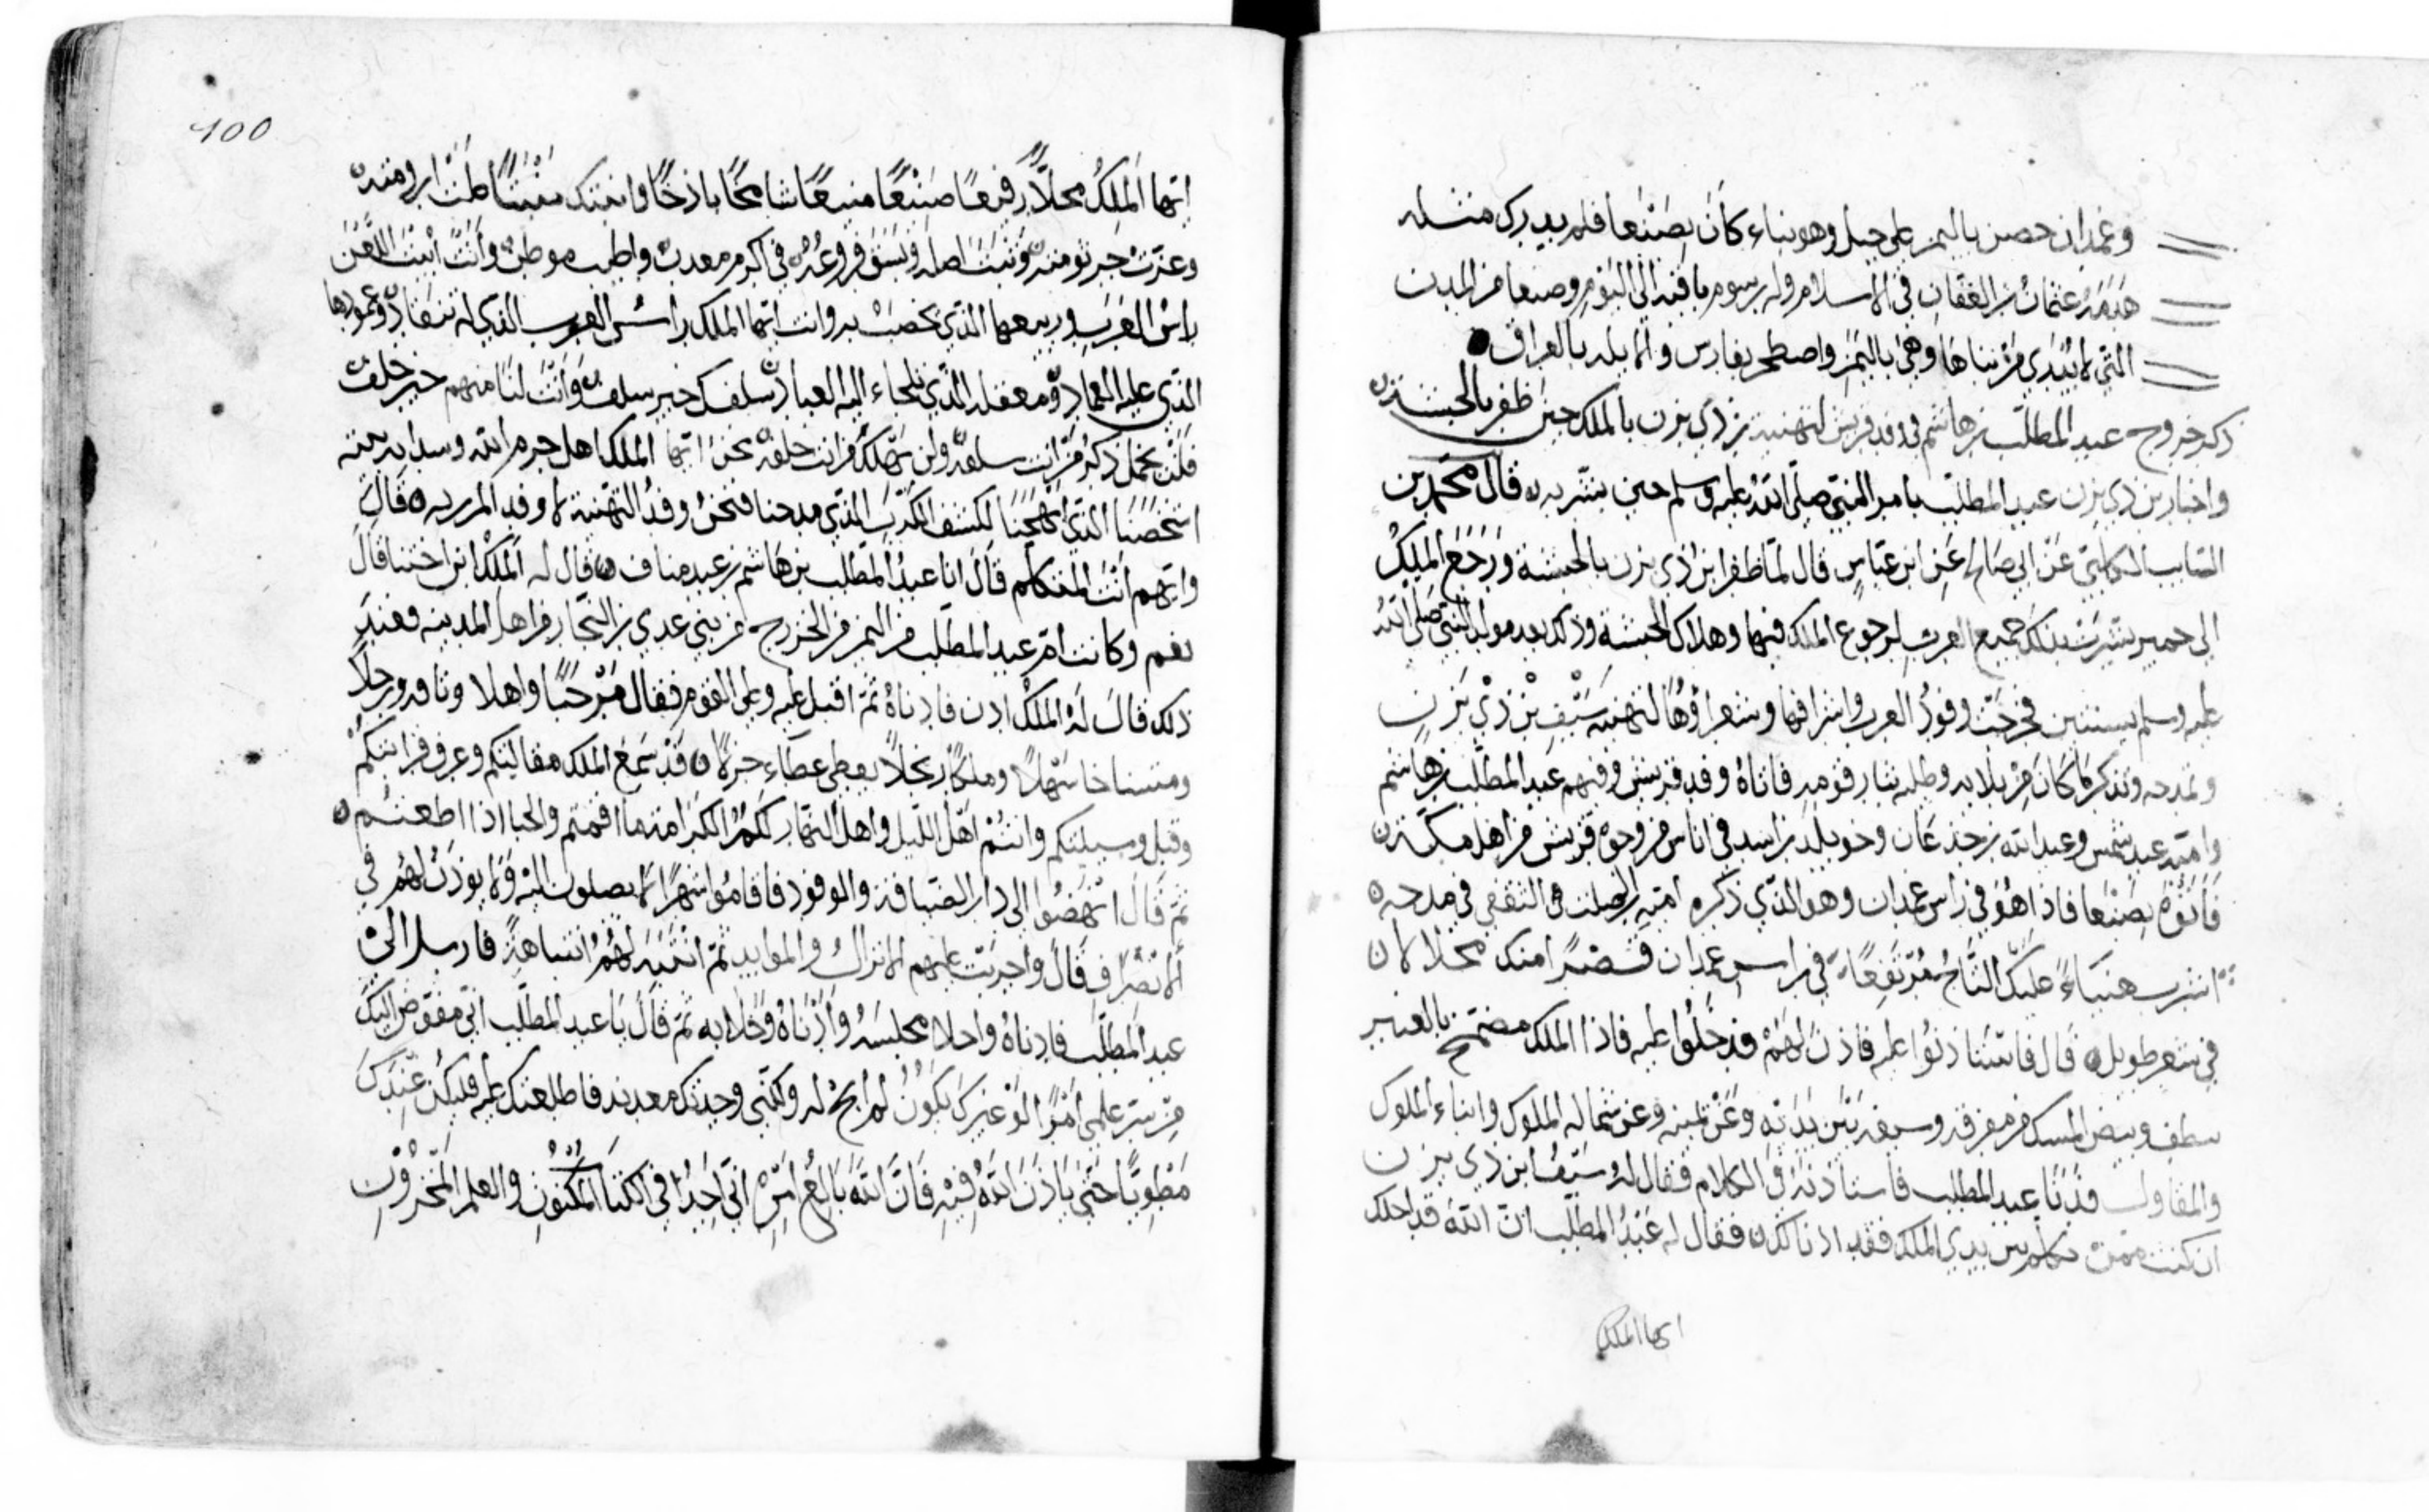 وغمدان حصن باليمن على جبل وهو بناء كان بصنعا فلم يدرك مثله
هدمه عثمان بن العفان في الاسلام وله رسوم باقيه الى اليوم وصنعا من المدن
التي لا يُدرى من بناها وهي باليمن واصطخر بفارس والابله بالعراق
ذكر خروج عبد المطلب بن هاشم في وفد قريش لتهنية بن ذي يزن بالملك حين ظفر بالحبشة
واخبار بن ذي يزن عبد المطلب بامر النبي صلى الله عليه وسلم حين بشر به قال محمد بن
السايب الكلبي عن ابي صالح عن ابن عباس قال لما ظفر ابن ذي يزن بالحبشة ورجع الملك
الى حمير بشرت بذلك جميع العرب لرجوع الملك فيها وهلاك الحبشة وذلك بعد مولد النبي صلى الله
عليه وسلم بسنتين فخرجت وفود العرب واشرافها وشعراؤها لتهنية سيف بن ذي يزن
ولمدحه وتذكر ما كان من بلايه وطلبه بثار قومه فاتاه وفد قريش وفيهم عبد المطلب بن هاشم
وامية عبد شمس وعبد الله بن جذعان وخويلد بن اسد في اناس من وجوه قريش من اهل مكة
فاتوه بصنعا فاذا هو في راس غمدان وهو الذي ذكره امية بن الصلت الثقفي في مدحه
اشرب هنياء عليك التاج مرتفعا في راس غمدان قصرا منك محلالا
في شعر طويل قال فاستاذنوا عليه فاذن لهم فدخلوا عليه فاذا الملك مضمخ بالعنبر
وبيض المسك من مفرقه وسيفه بين يديه وعن يمينه وعن شماله الملوك وابناء الملوك
والمقاول فدنا عبد المطلب فاستاذنه في الكلام فقال له سيف ابن ذي يزن
ان كنت ممن تكلم بين يدي الملك فقد اذنا لك فقال له عبد المطلب ان الله قد احلك
ايها الملك
100
ايها الملك محلا رفيعا صنيعا منيعا شامخا باذخا وانبتك منبتا طابت ارومته
وعزت جرثومته وثبت اصله وبسق فروعه في اكرم معدن واطيب موطن وانت ابيت اللعن
راس العرب وربيعها الذي تخصب به وانت ايها الملك راس العرب الذي له تنقاد وعمودها
الذي عليه العماد ومعقلها الذي يلجاء اليه العباد سلفك خير سلف وانت لنا منهم خير خلف
فلن يخمل ذكر من انت سلفه ولن يهلك من انت خلفه نحن ايها الملك اهل حرم الله وسدنة بيته
اشخصنا الذي ابهجنا لكشف الكرب الذي فدحنا فنحن وفد التهنية لا وفد المرزية قال
وايهم انت المتكلم قال انا عبد المطلب بن هاشم بن عبد مناف قال له الملك ابن اختنا قال
نعم وكانت ام عبد المطلب من اليمن من الخزرج من بني عدي بن النجار من اهل المدينه فعند
ذلك قال له الملك ادن فادناه ثم اقبل عليه وعلى القوم فقال مرحبا واهلا وناقة ورحلا
ومستناخا سهلا وملكا ربحلا يعطي عطاء جزلا قد سمع الملك مقالتكم وعرف قرابتكم
وقبل وسيلتكم وانتم اهل الليل واهل النهار لكم الكرامه ما اقمتم والحبا اذا ظعنتم
ثم قال انهضوا الى دار الضيافة والوفود فاقاموا شهرا لا يصلون اليه ولا يوذن لهم في
الانصراف قال واجريت عليهم الانزال والموايد ثم انتبه لهم انتباهة فارسل الى
عبد المطلب فادناه واخلا مجلسه وادناه وخلا به ثم قال يا عبد المطلب اني مفوض اليك
من سر علمي امرا لو غيرك يكون لم ابح له ولكني وجدتك معدنه فاطلعتك عليه فليكن عندك
مطويا حتى ياذن الله فيه فان الله بالغ امره اني اجد في الكتاب المكنون والعلم المخزون